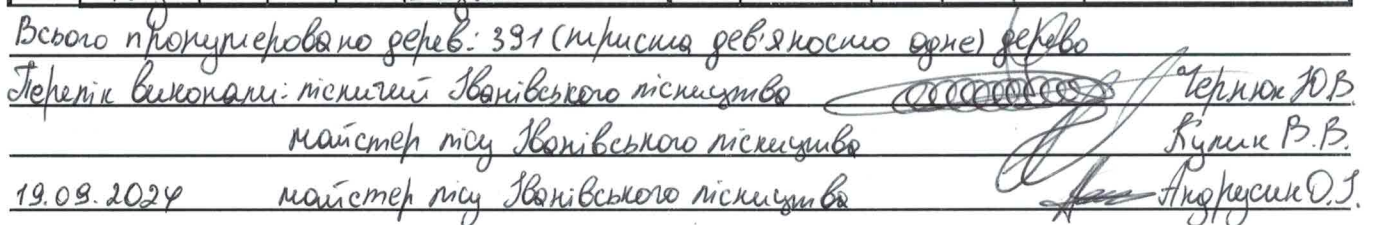 Всього пронумеровано дерев: 391 (триста дев'яносто одне) дерево
Перелік виконали: лісничий Іванівського лісництва Чернюк Ю.В
майстер лісу Іванівського лісництва Кулик В.В.
19.09.2024 майстер лісу Іванівського лісництва Андрусик О.І.